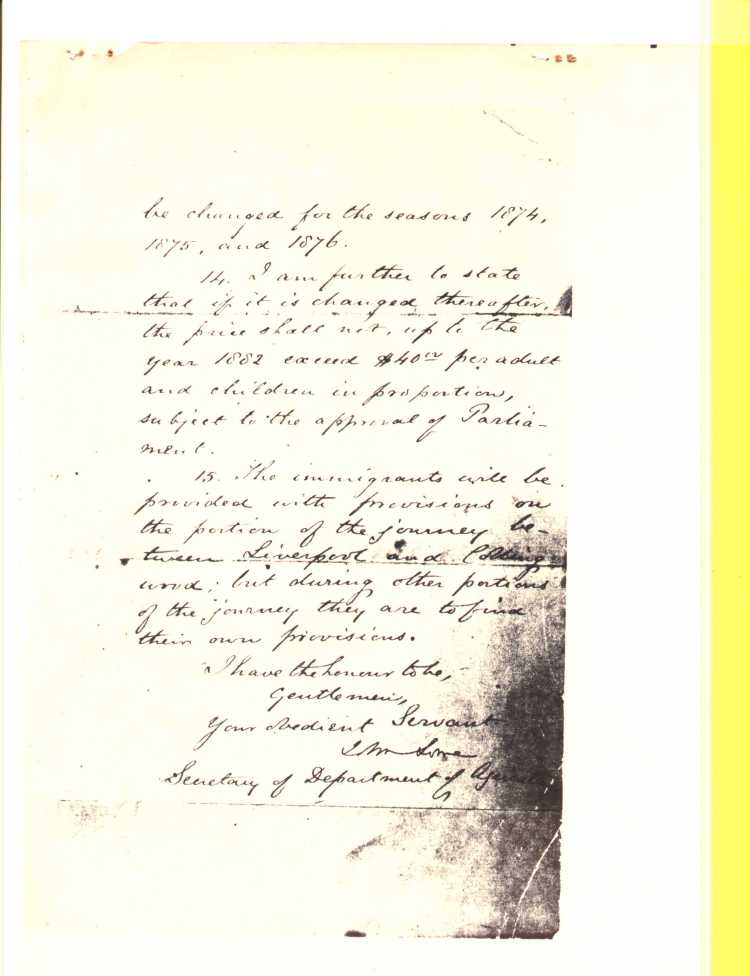 be changed for the seasons 1874,
1875, and 1876.
14. I am further to state
that if it is changed thereafter,
the price shall not, up to the
year 1882 exceed $40 per adult
and children in proportion,
subject to the approval of Parlia-
ment.
15. The immigrants will be
provided with provisions on
the portion of the journey be-
tween Liverpool and Colling
wood; but during other portions
of the journey they are to find
their own provisions.
I have the honour to be,
Gentlemen,
Your obedient Servant
John Lowe
Secretary of Department of